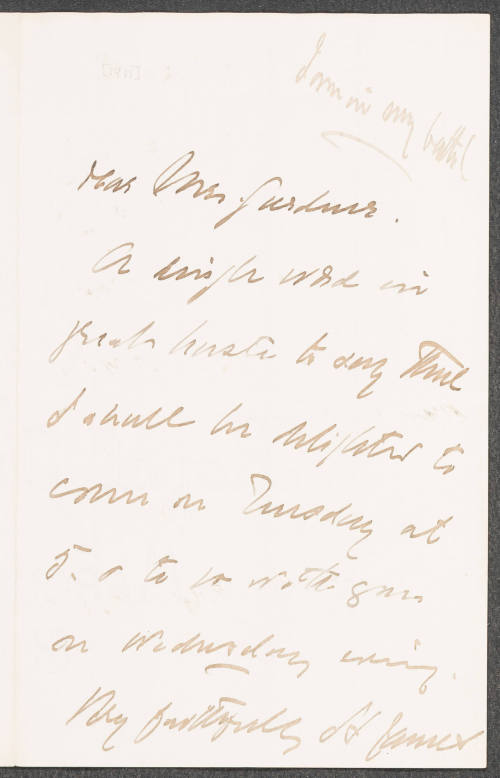 I am in my bath!
Dear Mrs. Gardner.
A single word in
great haste to say that
I shall be delighted to
come on Tuesday at
5. & to go with you
on Wednesday evening.
Very faithfully H James